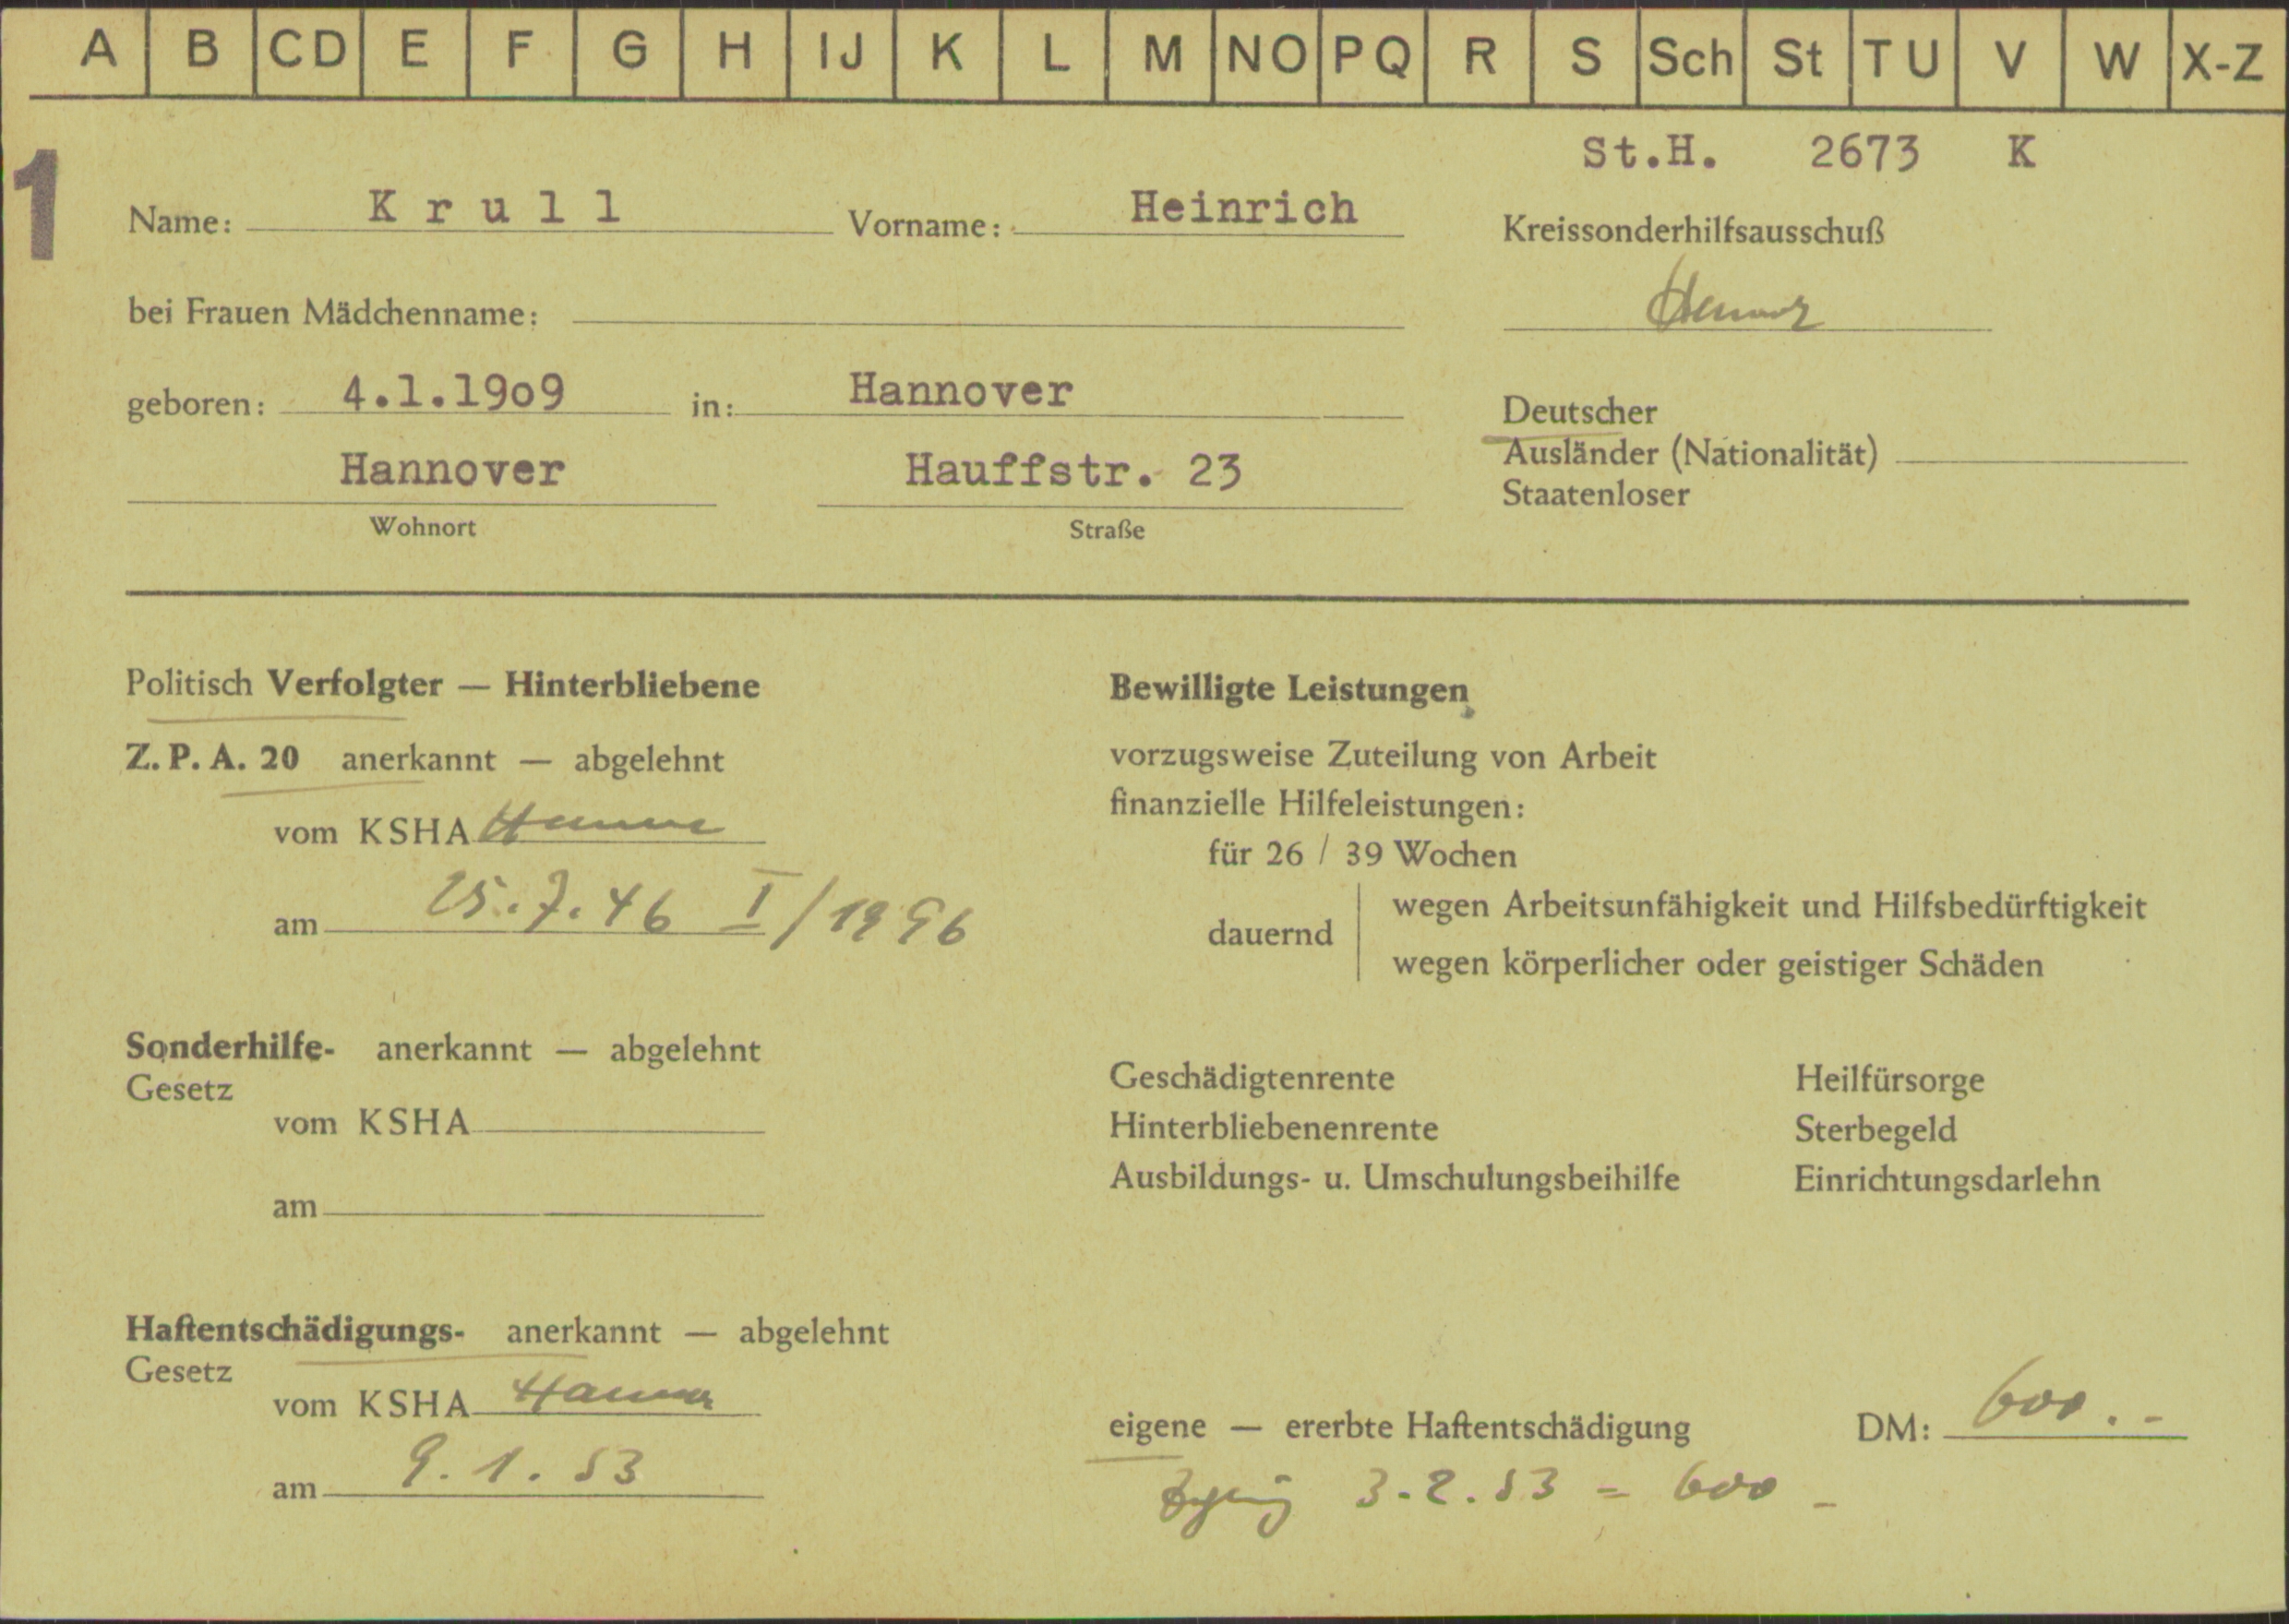 A B CD E F G H IJ K L M NO PQ R S Sch St TU V W X-Z
St.H. 2673 K
1
Name: Krull Vorname: Heinrich
Kreissonderhilfsausschuß
bei Frauen Mädchenname:
geboren: 4.1.1909 in: Hannover
Deutscher
Ausländer (Nationalität)
Staatenloser
Hannover Hauffstr. 23
Wohnort Straße
Politisch Verfolgter — Hinterbliebene
Z. P. A. 20 anerkannt — abgelehnt
vom KSHA
am 25.7.46 I/1996
Sonderhilfe- anerkannt — abgelehnt
Gesetz
vom KSHA
am
Haftentschädigungs- anerkannt — abgelehnt
Gesetz
vom KSHA
am 9.1.53
Bewilligte Leistungen
vorzugsweise Zuteilung von Arbeit
finanzielle Hilfeleistungen:
für 26 / 39 Wochen
dauernd
wegen Arbeitsunfähigkeit und Hilfsbedürftigkeit
wegen körperlicher oder geistiger Schäden
Geschädigtenrente Heilfürsorge
Hinterbliebenenrente Sterbegeld
Ausbildungs- u. Umschulungsbeihilfe Einrichtungsdarlehn
eigene — ererbte Haftentschädigung DM: 600.-
3.2.53 = 600 -